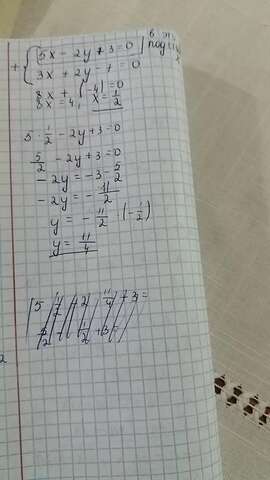 + { 5x - 2y + 3 = 0
3x + 2y - 7 = 0
8x + (-4) = 0
8x = 4, x = 1/2
5 · 1/2 - 2y + 3 = 0
5/2 - 2y + 3 = 0
- 2y = - 3 - 5/2
- 2y = - 11/2
y = - 11/2 · (- 1/2)
y = 11/4